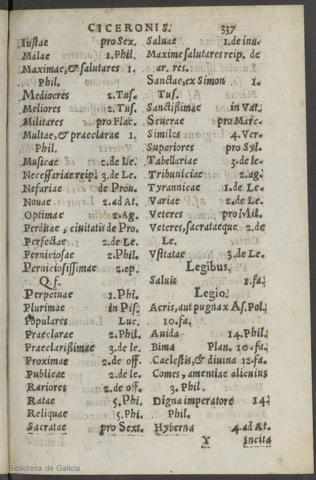 CICERONIS.
337
Iustae pro Sex.
Malae 1. Phil.
Maximae, & salutares 1.
Phil.
Mediocres 2. Tus.
Meliores 2. Tus.
Militares pro Flac.
Multae, & praeclarae 1.
Phil.
Musicae 2. de Le.
Necessariae reip. 3. de Le.
Nefariae de Prou.
Nouae 2. ad At.
Optimae 2. Ag.
Perditae, ciuitatis de Pro.
Perfectae 2. de Le.
Perniciosae 2. Phil.
Perniciosissimae 2. ep.
Q. f.
Perpetuae 1. Phi.
Plurimae in Pis.
Populares Luc.
Praeclarae 2. Phil.
Praeclarissimae 3. de le.
Proximae 2. de off.
Publicae 2. de le.
Rariores 2. de off.
Ratae 5. Phi.
Reliquae 5. Phi.
Sacratae pro Sext.
Saluae 1. de inu.
Maxime salutares reip. de
ar. res.
Sanctae, ex Simon 1.
Tus.
Sanctissimae in Vat.
Seuerae pro Marc.
Similes 4. Ver.
Superiores pro Syl.
Tabellariae 3. de le.
Tribuniciae 2. ag.
Tyrannicae 1. de Le.
Variae 2. de Le.
Veteres pro Mil.
Veteres, sacrataeque 2. de
Le.
Vsitatae 3. de Le.
Legibus.
Saluis 1. fa.
Legio.
Acris, aut pugnax As. Pol.
10. fa.
Auida 14. Phil.
Bima Plan. 10. fa.
Caelestis, & diuina 12. fa.
Comes, amentiae alicuius
3. Phil.
Digna imperatore 14.
Phil.
Hyberna 4. ad At.
Y Incita
Biblioteca de Galicia